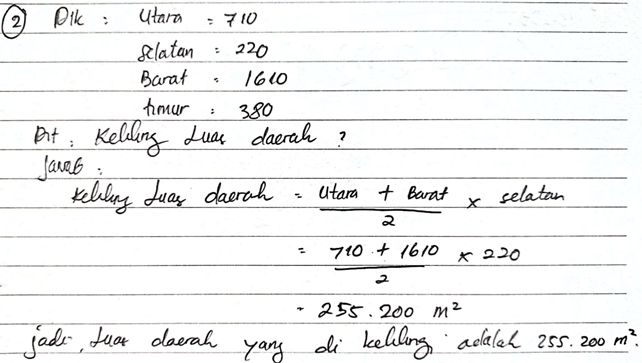 ② Dik : Utara = 710
Selatan : 220
Barat : 1610
timur : 380
Dit : Keliling Luas daerah ?
Jawab :
Keliling Luas daerah = Utara + Barat / 2 x selatan
= 710 + 1610 / 2 x 220
= 255.200 m²
jadi, Luas daerah yang di keliling adalah 255.200 m².